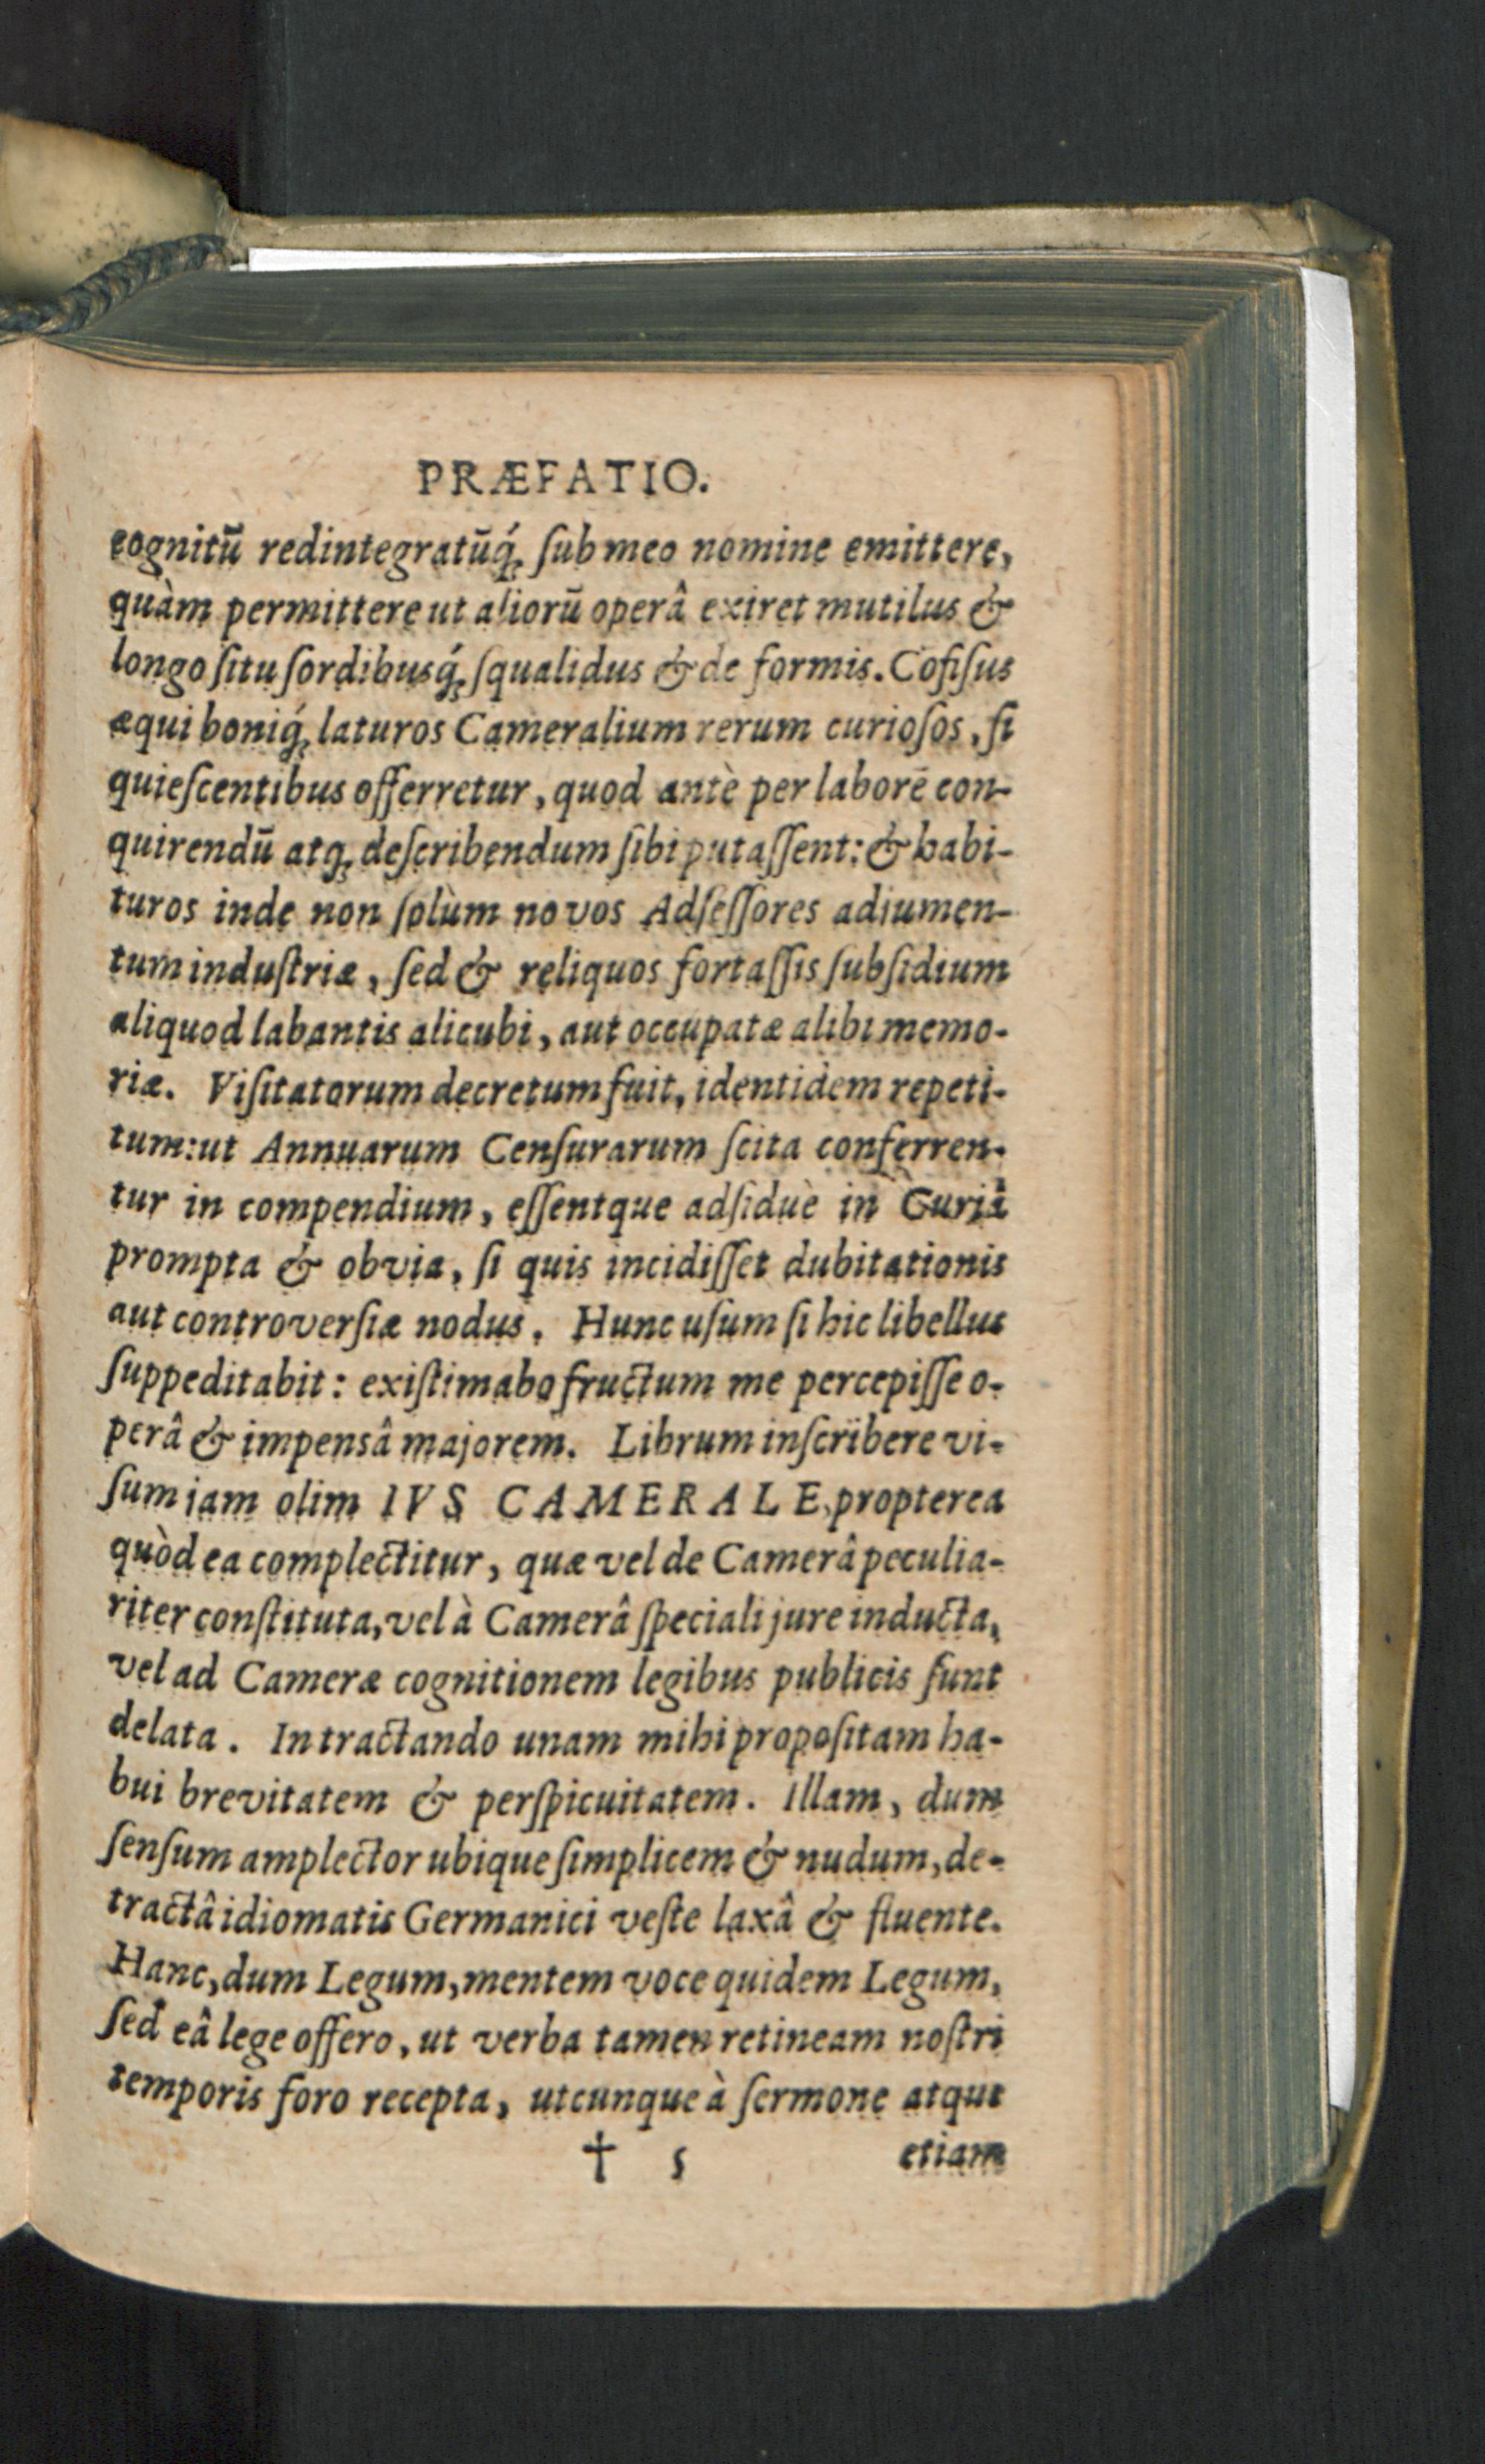 PRÆFATIO.
cognitū redintegratūq́; ſub meo nomine emittere,
quàm permittere ut aliorū operâ exiret mutilus &
longo ſitu ſordibusq́; ſqualidus & de formis. Cōfiſus
æqui boniq́; laturos Cameralium rerum curioſos, ſi
quieſcentibus offerretur, quod antè per laborē con-
quirendū atq; deſcribendum ſibi putaſſent: & habi-
turos inde non ſolùm novos Adſeſſores adiumen-
tum induſtriæ, ſed & reliquos fortaſſis ſubſidium
aliquod labantis alicubi, aut occupatæ alibi memo-
riæ. Viſitatorum decretum fuit, identidem repeti-
tum: ut Annuarum Cenſurarum ſcita conferren-
tur in compendium, eſſentque adſiduè in Curiâ
prompta & obvia, ſi quis incidiſſet dubitationis
aut controverſiæ nodus. Hunc uſum ſi hic libellus
ſuppeditabit: exiſtimabo fructum me percepiſſe o-
perâ & impensâ majorem. Librum inſcribere vi-
ſum iam olim IVS CAMERALE, propterea
quòd ea complectitur, quæ vel de Camerâ peculia-
riter conſtituta, vel à Camerâ ſpeciali jure inducta,
vel ad Cameræ cognitionem legibus publicis ſunt
delata. In tractando unam mihi propoſitam ha-
bui brevitatem & perſpicuitatem. Illam, dum
ſenſum amplector ubique ſimplicem & nudum, de-
tractâ idiomatis Germanici veſte laxâ & fluente.
Hanc, dum Legum, mentem voce quidem Legum,
ſed eâ lege offero, ut verba tamen retineam noſtri
temporis foro recepta, utcunque à ſermone atque
† 5 etiam